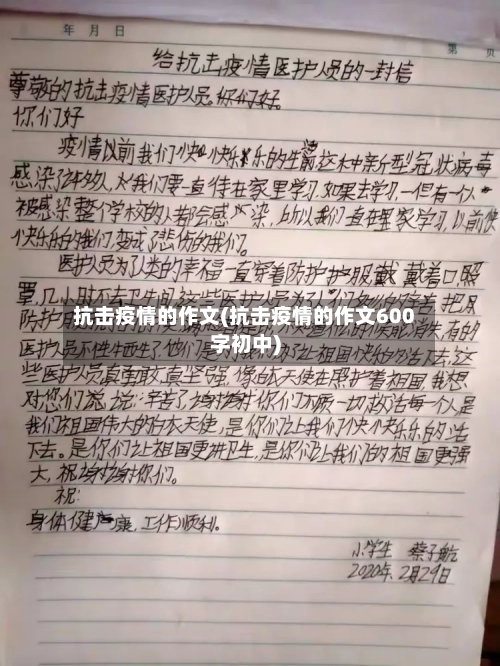 年 月 日
第 页
给抗击疫情医护人员的一封信
尊敬的抗击疫情医护人员。你们好。
你们好
疫情以前我们快快乐乐的生活这木中新型冠状病毒
感染许多人，我们要一直待在家里学习，如果去学习，一但有一个人
被感染整个学校的人都会感染，所以我们一直在里家学习，以前快
快乐乐的我们，变成了悲伤的我们。
医护人员为了人类的幸福一直穿着防护护服戴戴着口照
罩，几小时不去卫生间
抗击疫情的作文(抗击疫情的作文600
字初中)
医护人员不性牺牲了，他们是
些医护人员真勇敢，真坚强，像白衣天使在照护着祖国，我想
对您们说说：辛苦了谢谢谢你们不顾一切救活每个人是
我们祖国伟大的白衣天使，是你们让我们快快乐乐的活
下去。是你们让祖国更讲卫生，是你们让我们的祖国更强
大，祝谢谢你们。
祝：
身体健康，工作顺利。
小学生 蔡子航
2020年，2月29日